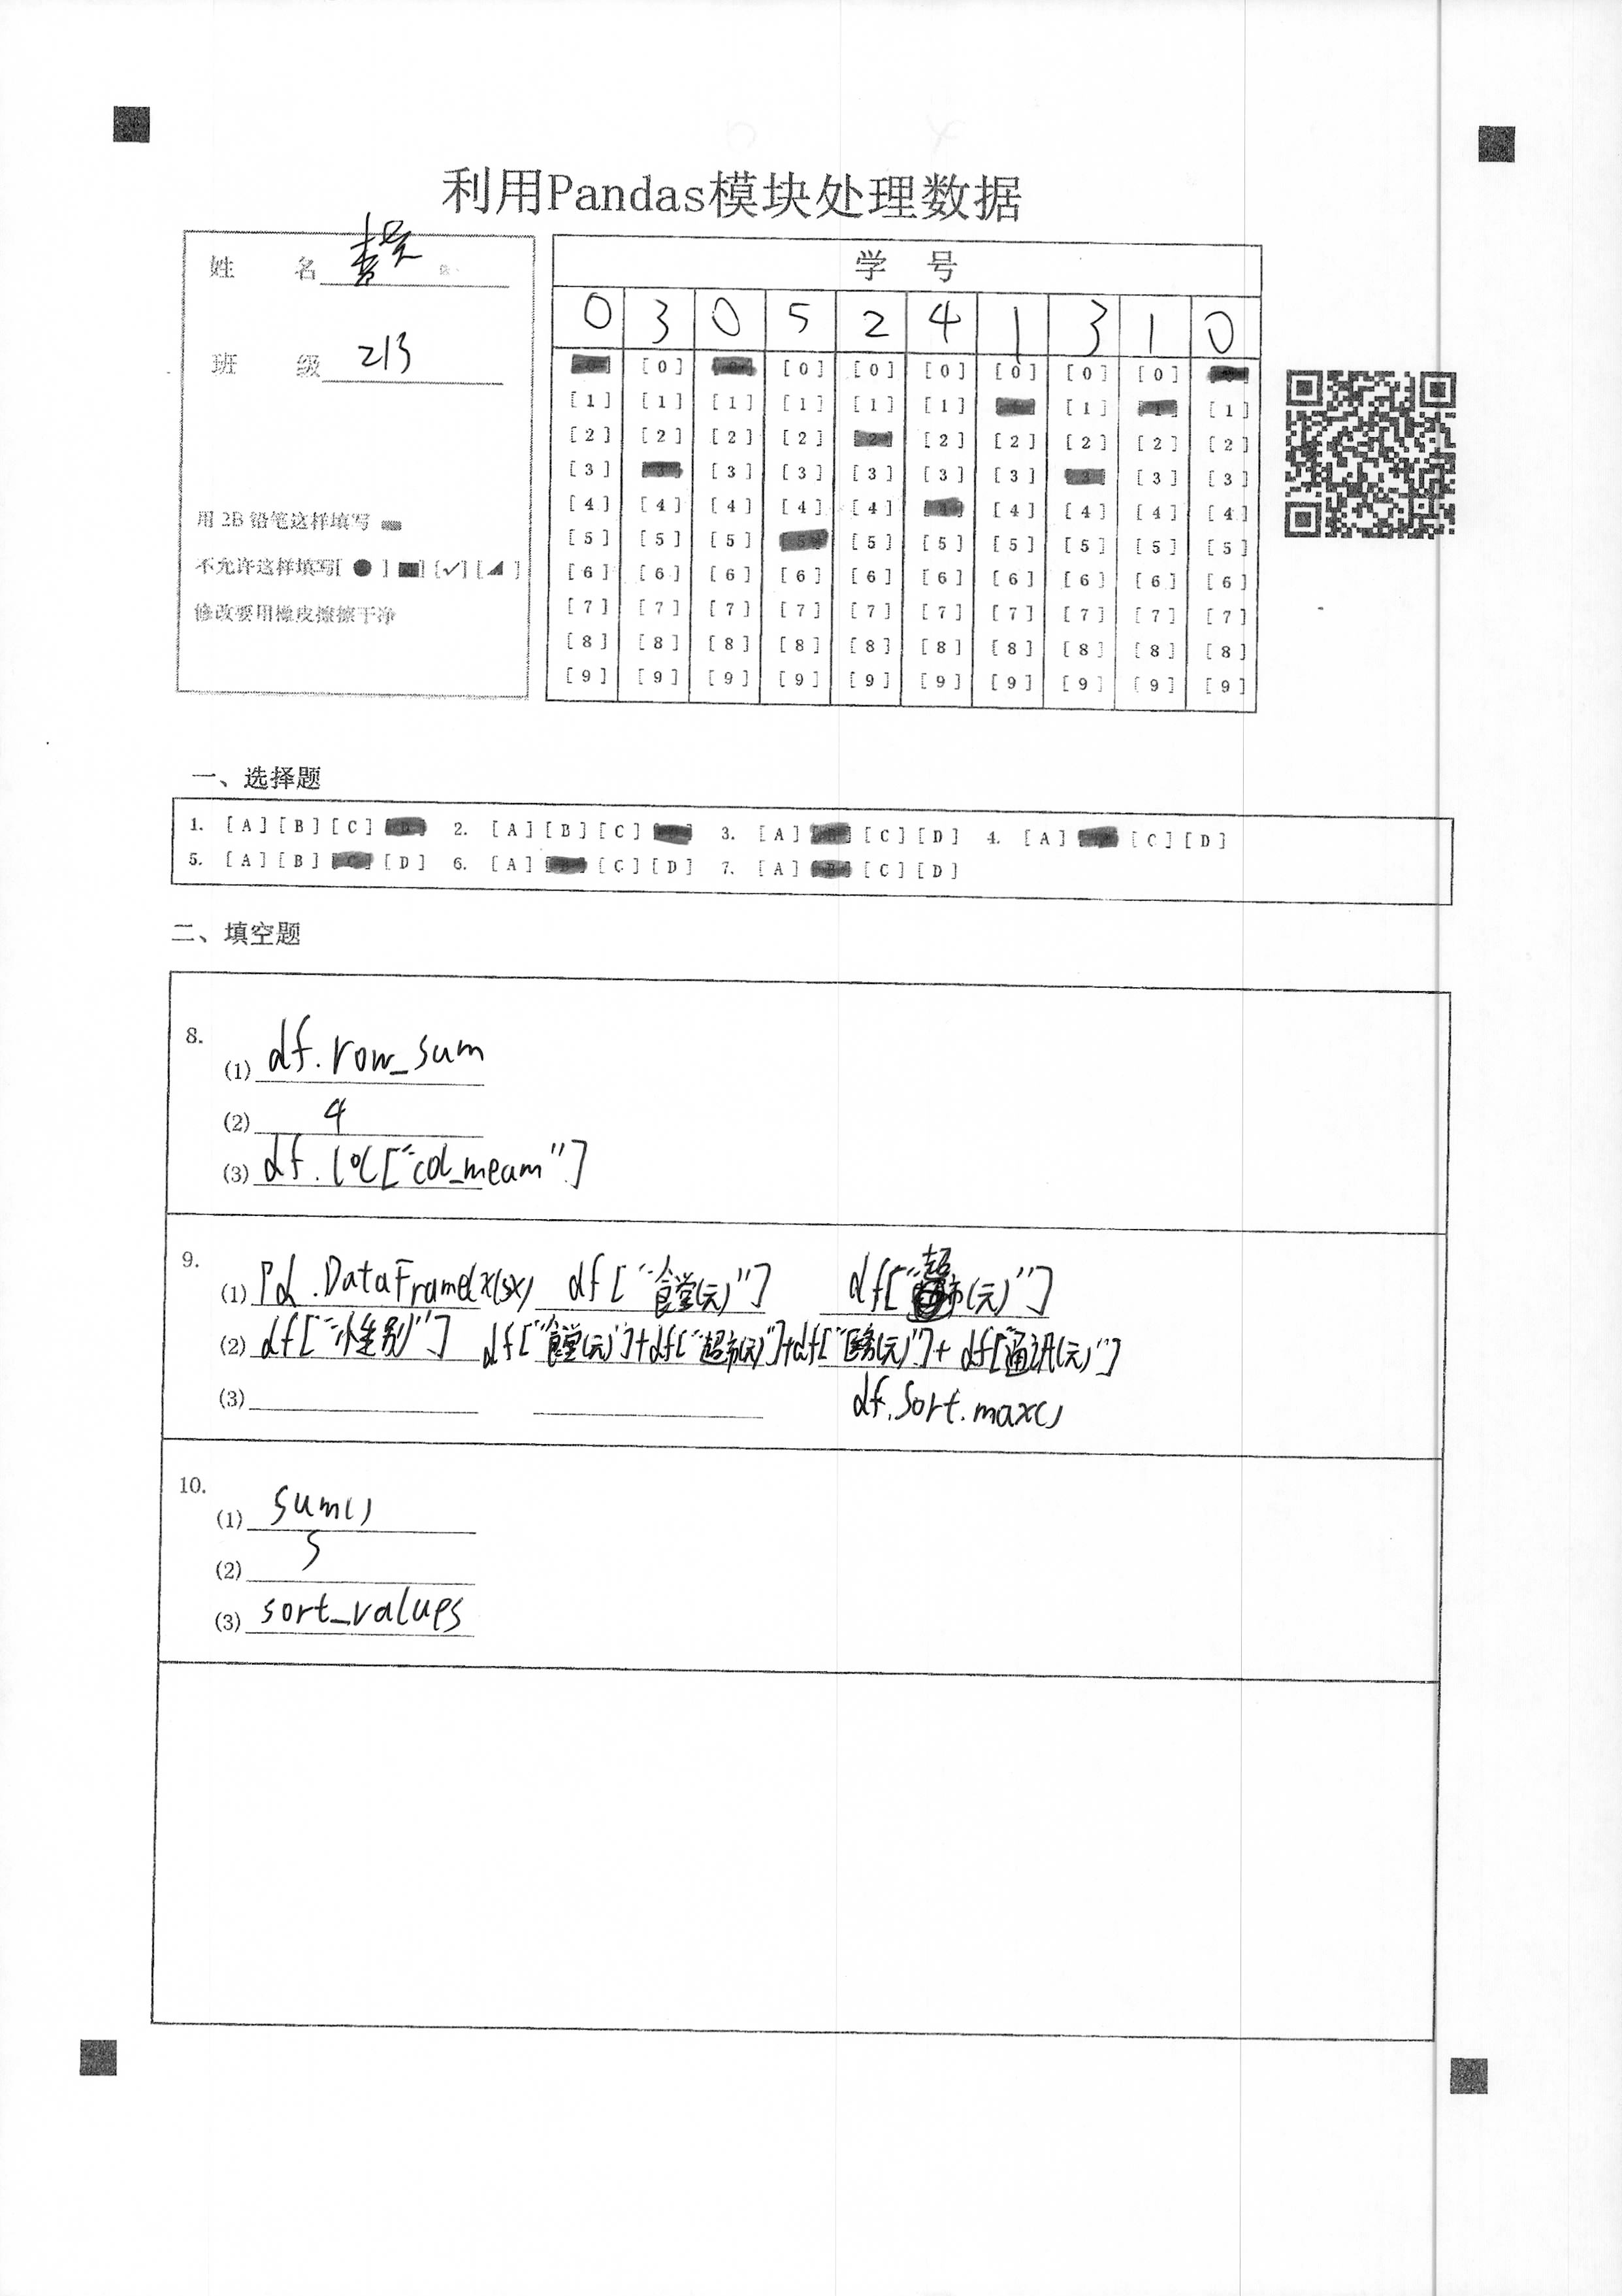 利用Pandas模块处理数据
姓 名
班 级 213
用 2B 铅笔这样填写
不允许这样填写[ ● ] [■] [✓] [◢ ]
修改要用橡皮擦擦干净
学 号
0 3 0 5 2 4 1 3 1 0
[0] [0] [0] [0] [0] [0]
[1] [1] [1] [1] [1] [1] [1] [1]
[2] [2] [2] [2] [2] [2] [2] [2] [2]
[3] [3] [3] [3] [3] [3] [3] [3]
[4] [4] [4] [4] [4] [4] [4] [4] [4]
[5] [5] [5] [5] [5] [5] [5] [5] [5]
[6] [6] [6] [6] [6] [6] [6] [6] [6] [6]
[7] [7] [7] [7] [7] [7] [7] [7] [7] [7]
[8] [8] [8] [8] [8] [8] [8] [8] [8] [8]
[9] [9] [9] [9] [9] [9] [9] [9] [9] [9]
一、选择题
1. [A] [B] [C] 2. [A] [B] [C] 3. [A] [C] [D] 4. [A] [C] [D]
5. [A] [B] [C] [D] 6. [A] [C] [D] 7. [A] [B] [C] [D]
二、填空题
8.
(1) df.row_sum
(2) 4
(3) df.loc["col_meam"]
9.
(1) Pd.DataFrame(x(sx) df["食堂(元)"] df["超市(元)"]
(2) df["性别"] df["食堂(元)"]+df["超市(元)"]+df["医务(元)"]+df["通讯(元)"]
(3) df.sort.max()
10.
(1) sum()
(2) 5
(3) sort_values